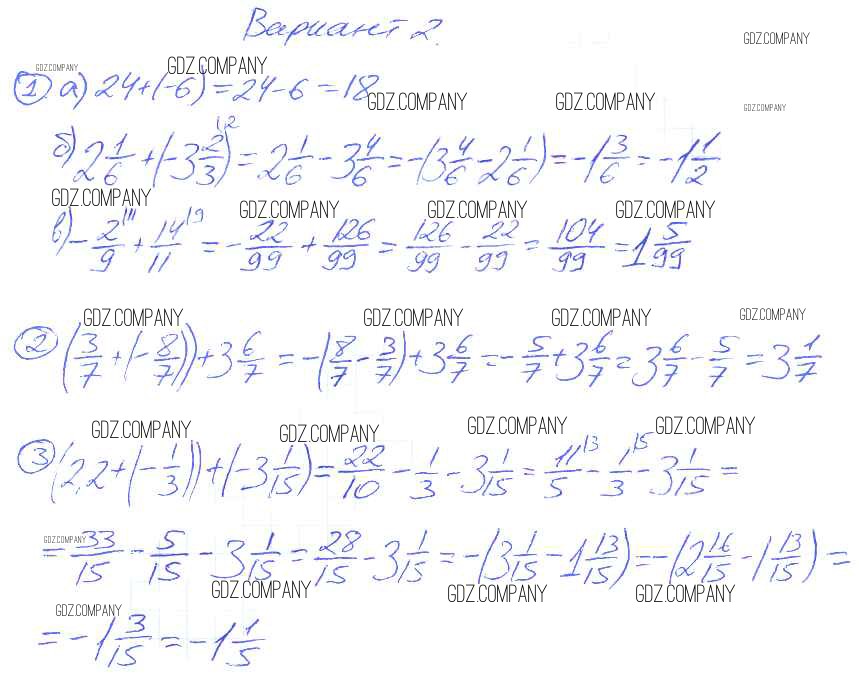 Вариант 2.
GDZ.COMPANY
GDZ.COMPANY GDZ.COMPANY
① а) 24+(-6)=24-6=18
GDZ.COMPANY GDZ.COMPANY GDZ.COMPANY
б) 2 1/6 + (-3 2/3)^(\2) = 2 1/6 - 3 4/6 = -(3 4/6 - 2 1/6) = -1 3/6 = -1 1/2
GDZ.COMPANY GDZ.COMPANY GDZ.COMPANY GDZ.COMPANY
в) - 2/9^(\11) + 14/11^(\9) = - 22/99 + 126/99 = 126/99 - 22/99 = 104/99 = 1 5/99
GDZ.COMPANY GDZ.COMPANY GDZ.COMPANY GDZ.COMPANY
② (3/7 + (- 8/7)) + 3 6/7 = -(8/7 - 3/7) + 3 6/7 = - 5/7 + 3 6/7 = 3 6/7 - 5/7 = 3 1/7
GDZ.COMPANY GDZ.COMPANY GDZ.COMPANY GDZ.COMPANY
③ (2,2 + (- 1/3)) + (-3 1/15) = 22/10 - 1/3 - 3 1/15 = 11/5^(\3) - 1/3^(\5) - 3 1/15 =
GDZ.COMPANY
= 33/15 - 5/15 - 3 1/15 = 28/15 - 3 1/15 = -(3 1/15 - 1 13/15) = -(2 16/15 - 1 13/15) =
GDZ.COMPANY GDZ.COMPANY GDZ.COMPANY
GDZ.COMPANY
= -1 3/15 = -1 1/5